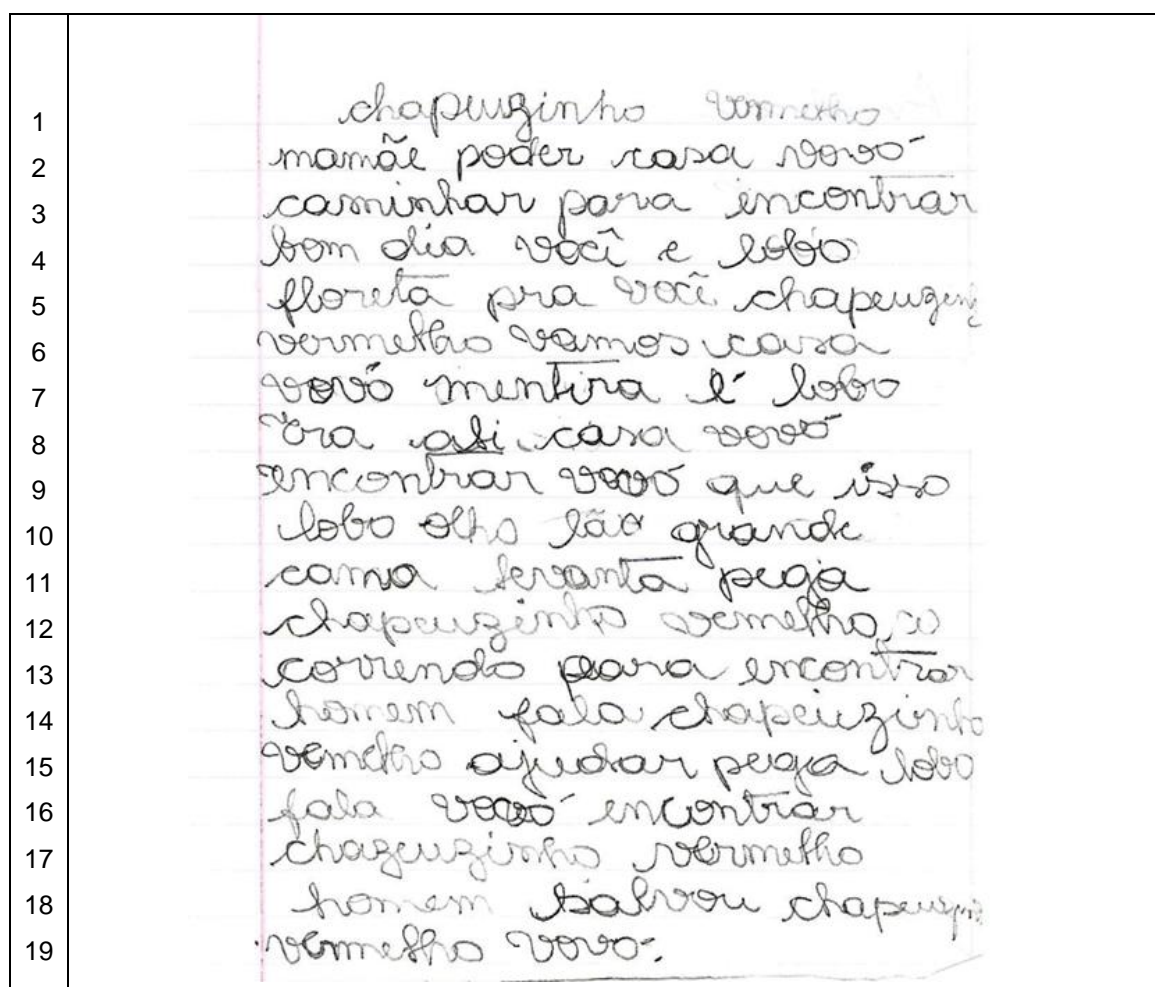 1 chapeuzinho vermelho
2 mamãe poder casa vovó
3 caminhar para encontrar
4 bom dia você e lobo
5 floreta pra você
6 vermelho vamos casa
7 vovó mentira é lobo
8 ora ali casa vovó
9 encontrar vovó que isso
10 lobo olho tão grande
11 cama levanta pega
12 chapeuzinho vemelho
13 correndo para encontrar
14 homem fala chapeuzinho
15 vemelho ajudar pega lobo
16 fala vovó encontrar
17 chazeuzinho vermelho
18 homem salvou
19 vermelho vovó.